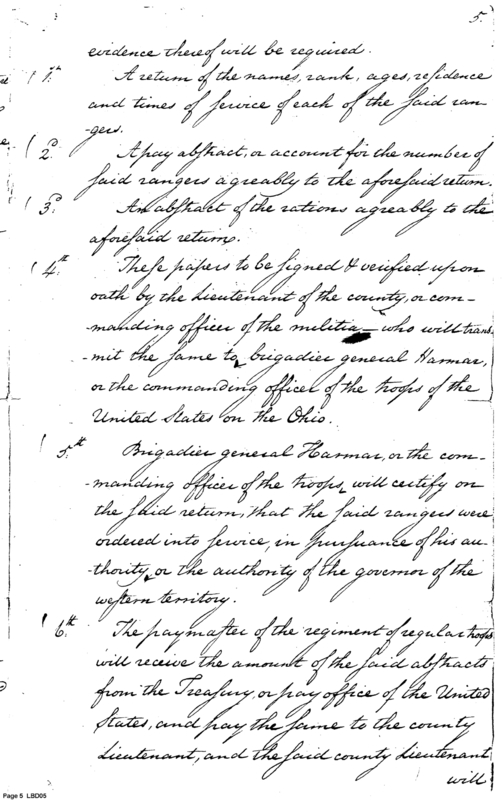 5.
evidence thereof will be required.
1st A return of the names, rank, ages, residence
and times of service of each of the said ran-
-gers.
2d A pay abstract, or account for the number of
said rangers agreably to the aforesaid return.
3d An abstract of the rations agreably to the
aforesaid return.
4th These papers to be signed & verified upon
oath by the Lieutenant of the county, or com-
-manding officer of the militia — who will trans-
-mit the same to brigadier general Harmar,
or the commanding officer of the troops of the
United States on the Ohio.
5th Brigadier general Harmar, or the com-
-manding officer of the troops, will certify on
the said return, that the said rangers were
ordered into service, in pursuance of his au-
-thority, or the authority of the governor of the
western territory.
6th The paymaster of the regiment of regular troops
will receive the amount of the said abstracts
from the Treasury, or pay office of the United
States, and pay the same to the county
Lieutenant, and the said county Lieutenant
will
Page 5 LBD05